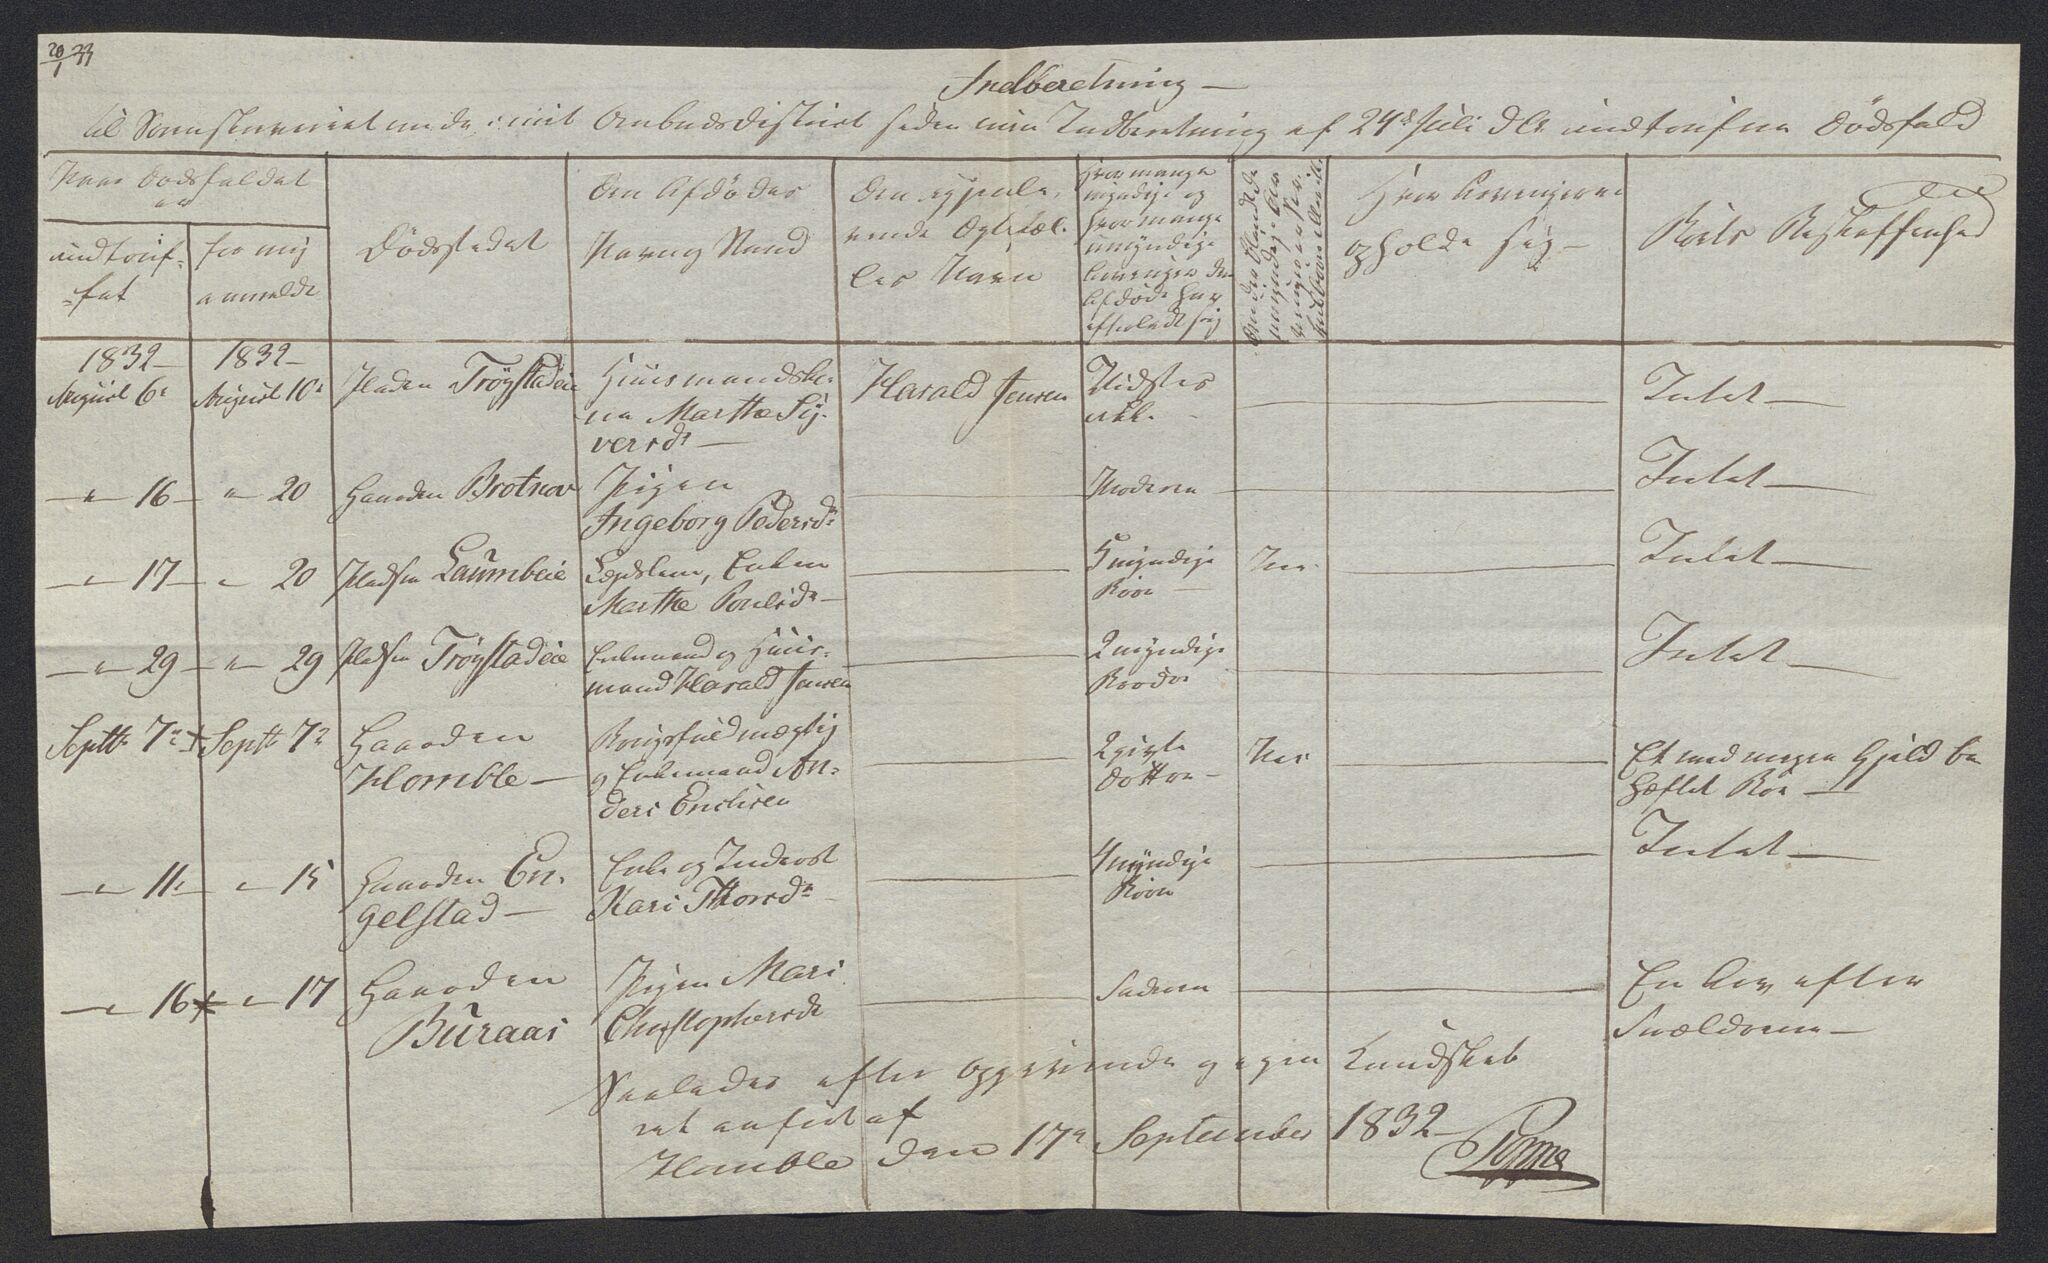 20/1 33
Indberetning —
til Sorenskriveriet om de i mit Ombudsdistrict siden min Indberetning af 24de Juli d. A. indtrufne Dödsfald
Naar Dödsfaldet er
indtruf-
fet
for mig
anmeldt
Dödsstedet
Den Afdödes
Navn og Stand
Den efterle-
vende Ægtefæl-
les Navn
Hvor mange
myndige og
hvor mange
umyndige
Arvinger den
Afdöde har
efterladt sig
Hvor Arvingerne
opholde sig —
Boets Beskaffenhed
1832 — 1832 —
August 6te August 10de Pladsen Tröystadeie Huusmandsko-
ne Marthe Sy-
versdr — Harald Jensen Vidstes
ikke — Intet —
— " — 16 — " — 20 Gaarden Brotnov Pigen
Ingeborg Pedersdr Moderen Intet —
— " — 17 — " — 20 Pladsen Laumbeie Lægdslem, Enken
Marthe Poulsdr — myndige
Börn — Intet —
— " — 29 — " — 29 Pladsen Tröystadeie Enkemand og Huus-
mand Harald Jensen 2 myndige
Intet —
Septbr 7de Septbr 7de Gaarden
Homble — 
og Enkemand An-
ders Enchsen 2 givte
Döttre — Et med megen Gjeld be
hæftet Boe —
— " — 11 — " — 15 Gaarden En-
gelstad — Enke og Inderst
Kari Thorsdr — 4 myndige
Börn Intet —
— " — 16 — " — 17 Gaarden
Buraas Pigen Mari
Christophersdr Faderen En Arv efter
Forældrene —
Saaledes efter Opgivende og egen Kundskab
ret anfört af
Homble den 17de September 1832 —